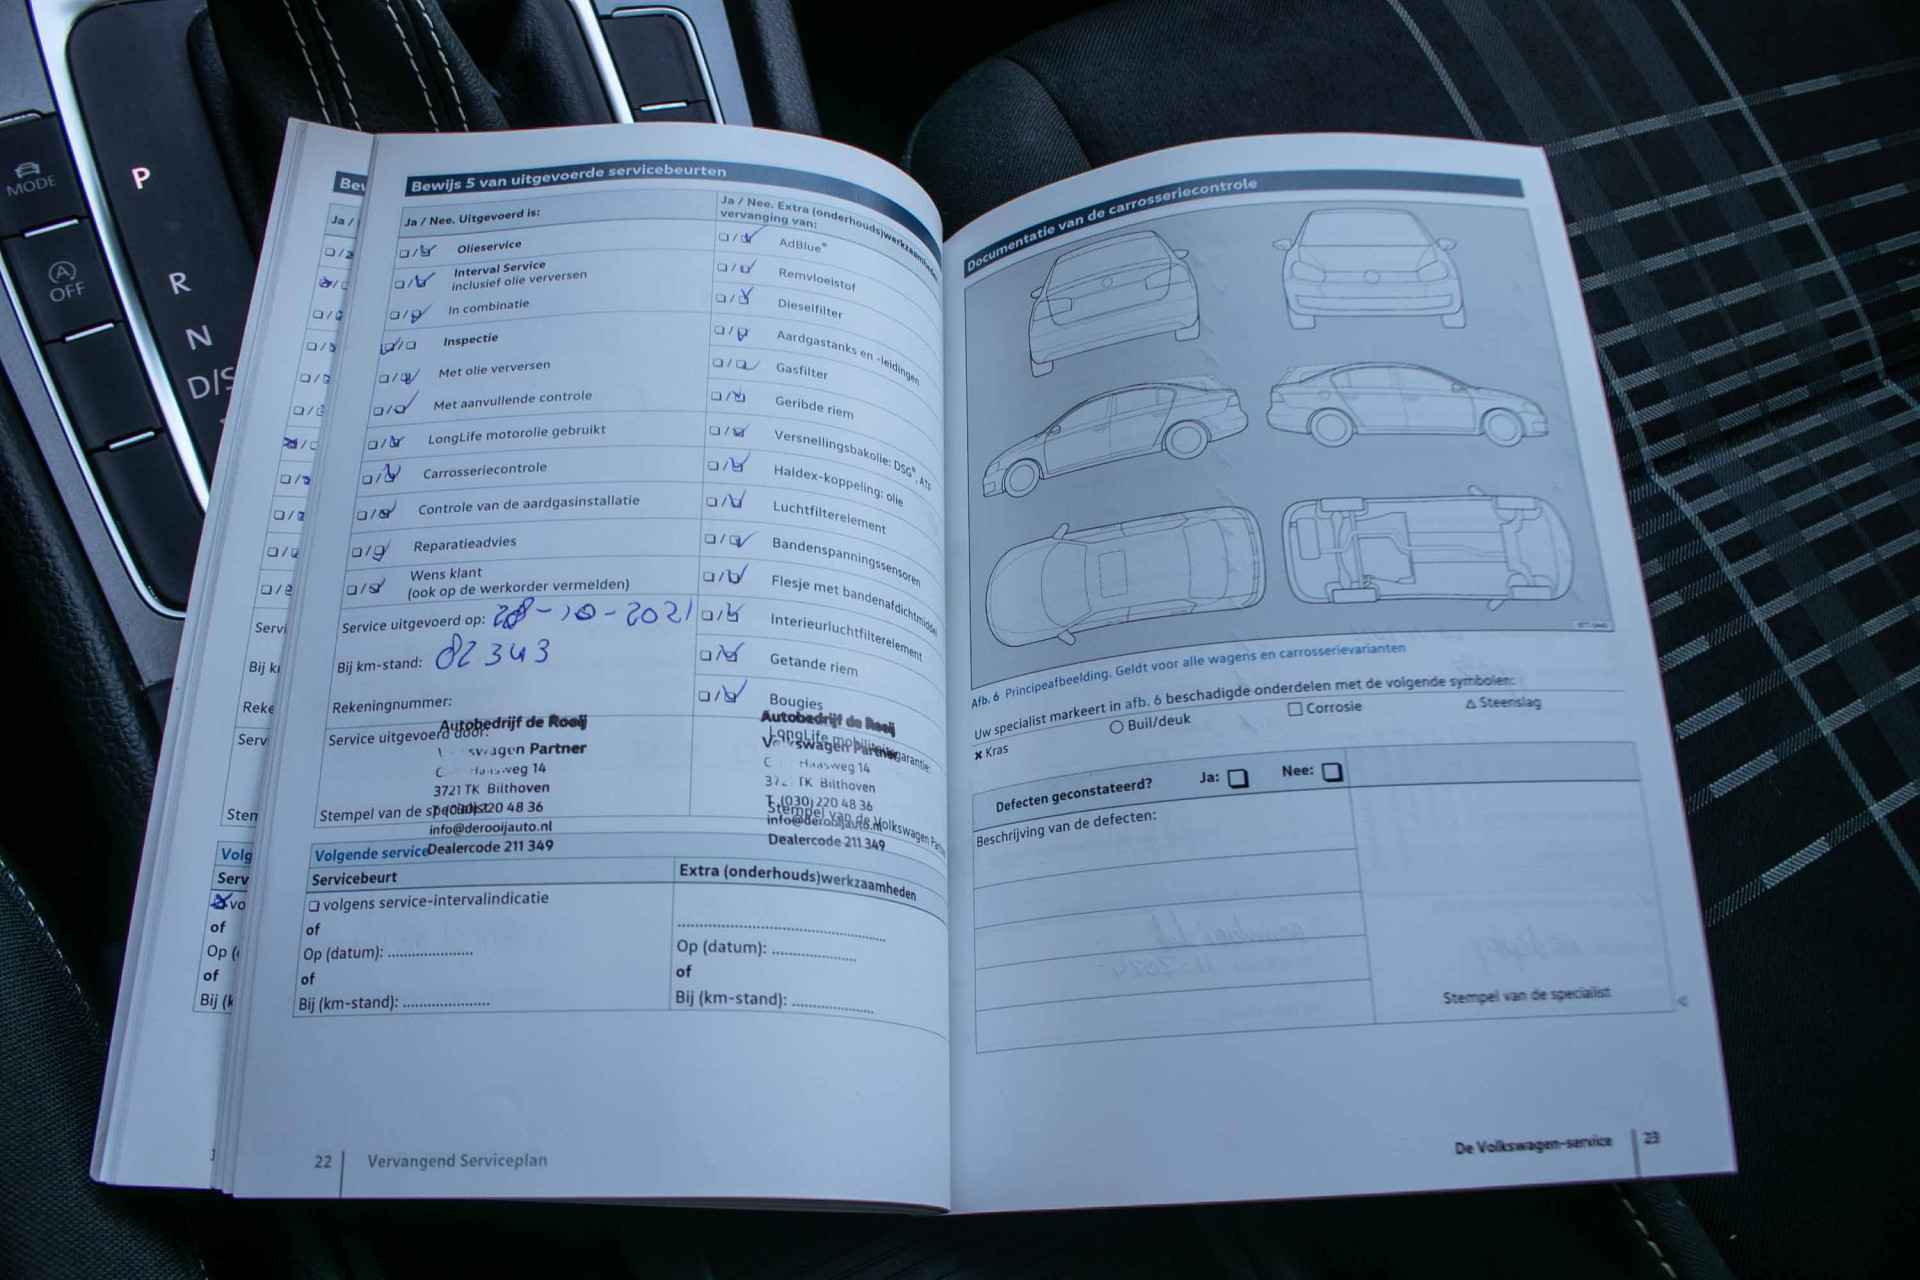 MODE
A
OFF
P
R
N
D/S
Bewijs 5 van uitgevoerde servicebeurten
Ja / Nee. Uitgevoerd is:
Olieservice
Interval Service
inclusief olie verversen
In combinatie
Inspectie
Met olie verversen
Met aanvullende controle
LongLife motorolie gebruikt
Carrosseriecontrole
Controle van de aardgasinstallatie
Reparatieadvies
Wens klant
(ook op de werkorder vermelden)
Service uitgevoerd op: 28-10-2021
Bij km-stand: 82343
Rekeningnummer:
Service uitgevoerd door:
Autobedrijf de Rooij
Volkswagen Partner
weg 14
3721 TK Bilthoven
Stempel van de specialist
T (030) 220 48 36
info@derooijauto.nl
Dealercode 211 349
Ja / Nee. Extra (onderhouds)werkzaamheden
vervanging van:
AdBlue®
Remvloeistof
Dieselfilter
Aardgastanks en -leidingen
Gasfilter
Geribde riem
Versnellingsbakolie: DSG®, ATF
Haldex-koppeling: olie
Luchtfilterelement
Bandenspanningssensoren
Flesje met bandenafdichtmiddel
Interieurluchtfilterelement
Getande riem
Bougies
Autobedrijf de Rooij
LongLife mobiliteitsgarantie:
Volkswagen Partner
weg 14
TK Bilthoven
T (030) 220 48 36
Stempel van de Volkswagen Partner
info@derooijauto.nl
Dealercode 211 349
Volgende service
Servicebeurt
Extra (onderhouds)werkzaamheden
volgens service-intervalindicatie
of
Op (datum): ....................
of
Bij (km-stand): ....................
Op (datum): ....................
of
Bij (km-stand): ....................
22
Vervangend Serviceplan
Documentatie van de carrosseriecontrole
Afb. 6 Principeafbeelding. Geldt voor alle wagens en carrosserievarianten
Uw specialist markeert in afb. 6 beschadigde onderdelen met de volgende symbolen:
× Kras
○ Buil/deuk
□ Corrosie
△ Steenslag
Defecten geconstateerd?
Ja:
Nee:
Beschrijving van de defecten:
Stempel van de specialist
De Volkswagen-service
23